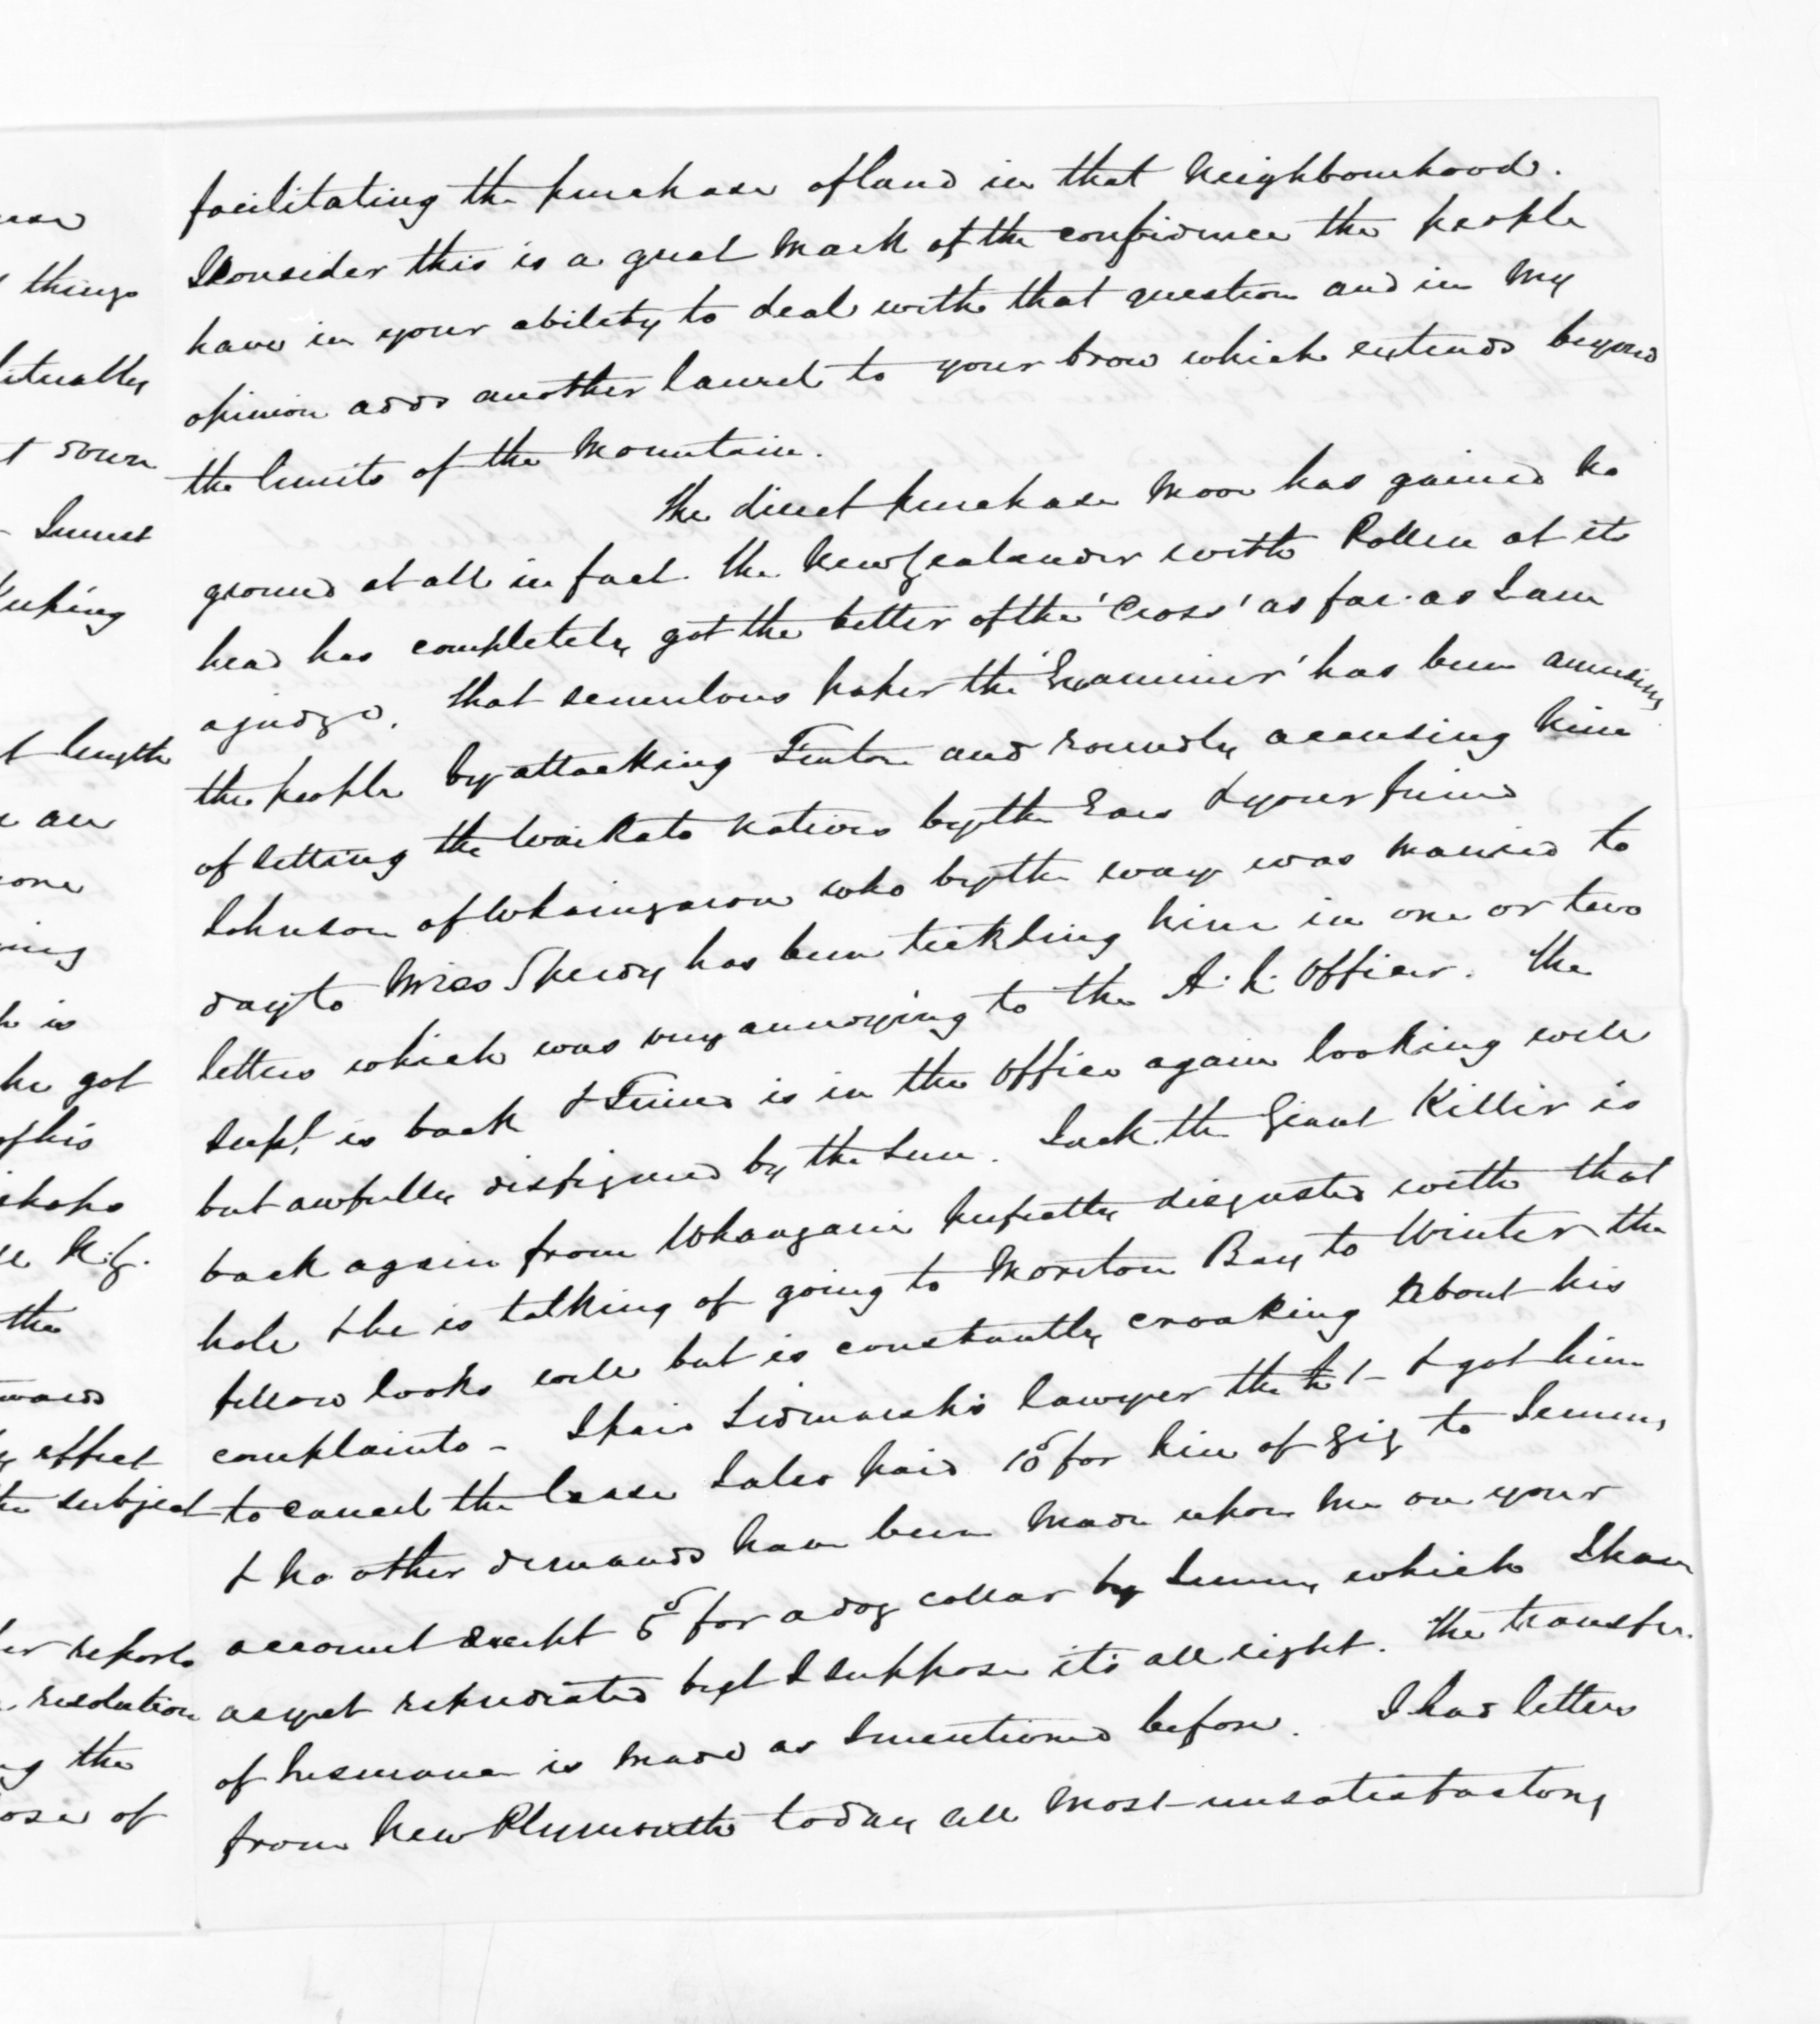 facilitating the purchase of land in that neighbourhood.
I consider this is a great mark of the confidence the people
have in your ability to deal with that question and in my
opinion adds another laurel to your brow which extends beyond
the limits of the Mountain.
The direct purchase move has gained no
ground at all in fact. The New Zealander with Pollen at its
head has completely got the better of the 'Cross' as far as I am
a judge. That scurulous paper the 'Examiner' has been amusing
the people by attacking Fenton and roundly accusing him
of setting the Waikato natives by the Ears & your friend
Johnson of Whaingaroa who by the way was married to
day to Miss Speedy has been tickling him in one or two
letters which was very annoying to the officer. The
Supt. is back & is in the office again looking well
but awfully disfigured by the Sun. Jack the Giant Killer is
back again from Whangarei perfectly disgusted with that
hole & he is talking of going to Moreton Bay to Winter the
fellow looks well but is constantly croaking about his
complaints - I paid Lidmarsh's lawyer the £1- & got him
to cancel the lease I also paid 10s for hire of gig to
& no other demands have been made upon me on your
account except 5s for a dog collar by which I have
as yet repudiated but I suppose it's all right. The transfer
of Insurance is made as I mentioned before. I had letters
from New Plymouth today all most unsatisfactory
things
down
length
an
is
he got
of his
the
effect
the subject
reports
resolution
the
of